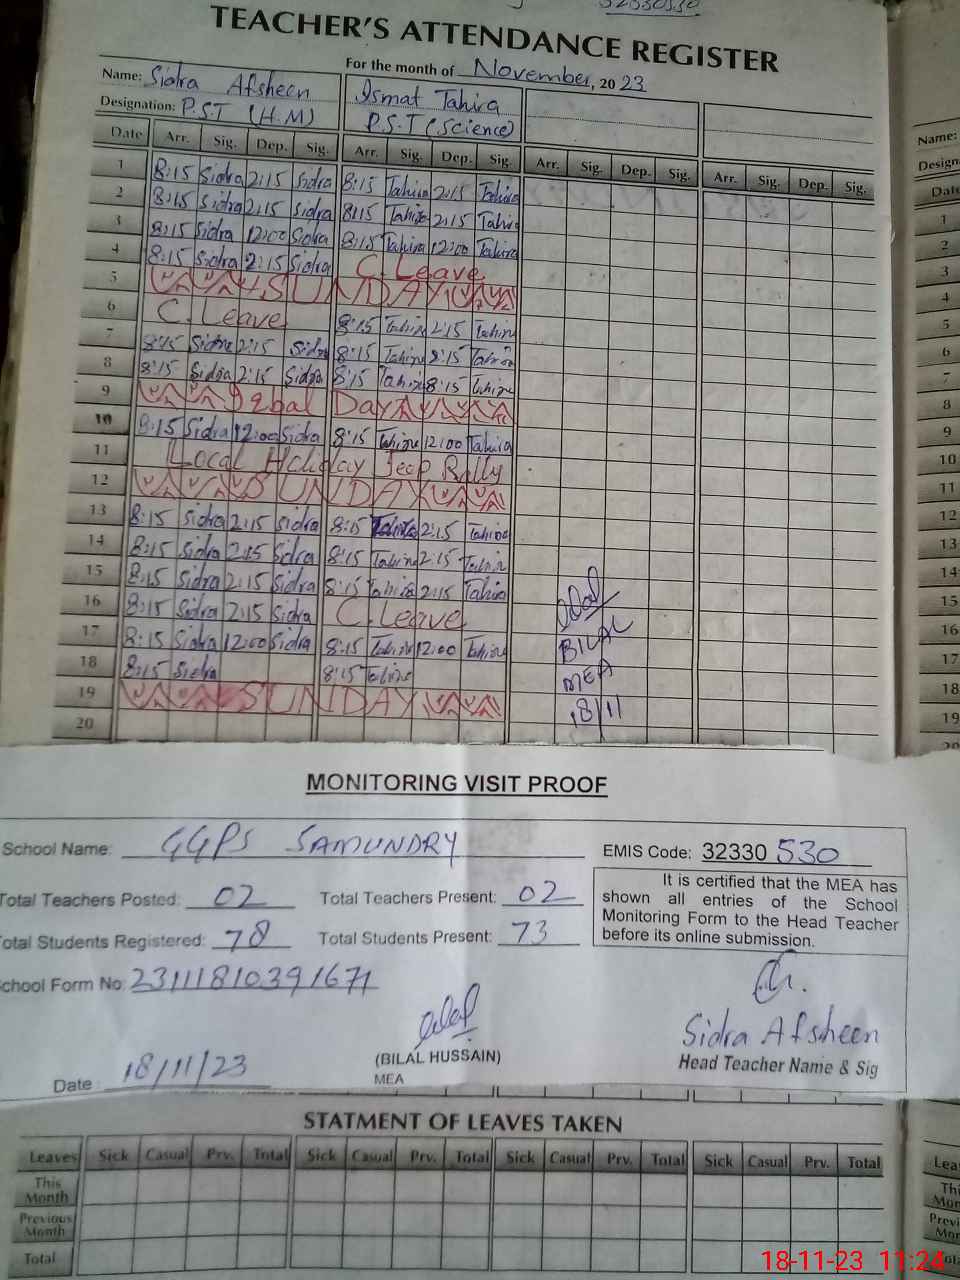 32330530
TEACHER'S ATTENDANCE REGISTER
For the month of November, 20 23
Name: Sidra Afsheen Ismat Tahira
Designation: P.S.T (H.M) P.S.T (Science)
Date Arr. Sig. Dep. Sig. Arr. Sig. Dep. Sig. Arr. Sig. Dep. Sig. Arr. Sig. Dep. Sig.
1 8:15 Sidra 2:15 Sidra 8:15 Tahira 2:15 Tahira
2 8:15 Sidra 2:15 Sidra 8:15 Tahira 2:15 Tahira
3 8:15 Sidra 12:00 Sidra 8:15 Tahira 12:00 Tahira
4 8:15 Sidra 2:15 Sidra C.Leave
5 SUNDAY
6 C.Leave 8:15 Tahira 2:15 Tahira
7 8:15 Sidra 2:15 Sidra 8:15 Tahira 2:15 Tahira
8 8:15 Sidra 2:15 Sidra 8:15 Tahira 8:15 Tahira
9 Iqbal Day
10 8:15 Sidra 12:00 Sidra 8:15 Tahira 12:00 Tahira
11 Local Holiday Jeep Rally
12 SUNDAY
13 8:15 Sidra 2:15 Sidra 8:15 Tahira 2:15 Tahira
14 8:15 Sidra 2:15 Sidra 8:15 Tahira 2:15 Tahira
15 8:15 Sidra 2:15 Sidra 8:15 Tahira 2:15 Tahira
16 8:15 Sidra 2:15 Sidra C.Leave
17 8:15 Sidra 12:00 Sidra 8:15 Tahira 12:00 Tahira
18 8:15 Sidra 8:15 Tahira
19 SUNDAY
20
Bilal
BILAL
MEA
18/11
MONITORING VISIT PROOF
School Name: GGPS SAMUNDRY EMIS Code: 32330 530
Total Teachers Posted: 02 Total Teachers Present: 02
Total Students Registered: 78 Total Students Present: 73
It is certified that the MEA has
shown all entries of the School
Monitoring Form to the Head Teacher
before its online submission.
School Form No: 23111810391671
Bilal
(BILAL HUSSAIN)
MEA
Sidra Afsheen
Head Teacher Name & Sig
Date : 18/11/23
STATMENT OF LEAVES TAKEN
Leaves Sick Casual Prv. Total Sick Casual Prv. Total Sick Casual Prv. Total Sick Casual Prv. Total
This Month
Previous Month
Total
Name:
Design
Date
1
2
3
4
5
6
7
8
9
10
11
12
13
14
15
16
17
18
19
20
18-11-23 11:24